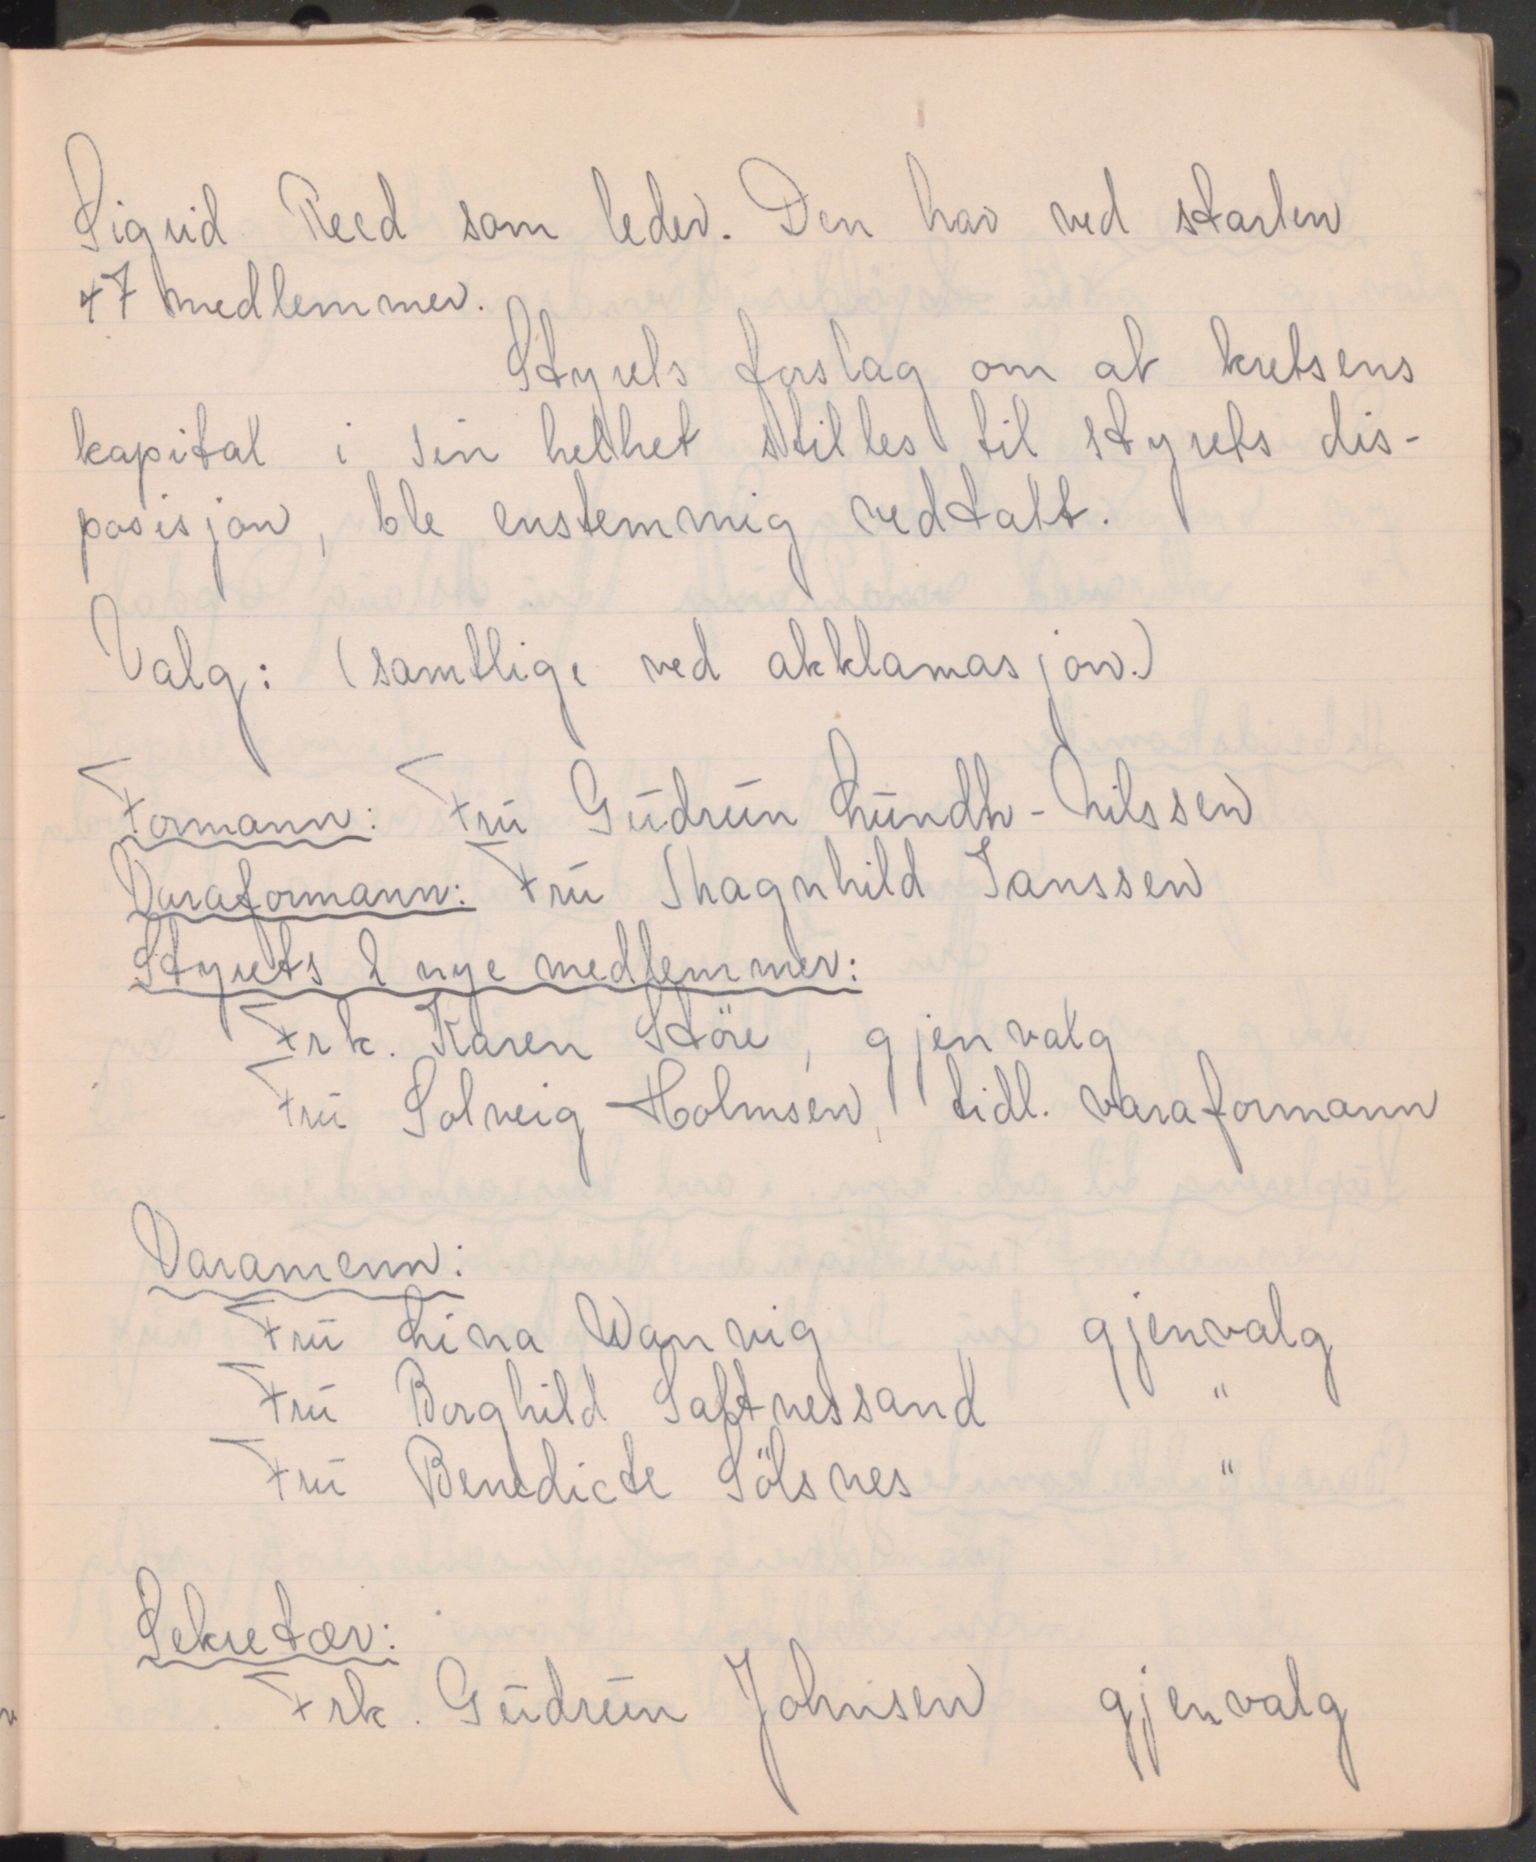 Sigrid Reed som leder. Den har ved starten
47 medlemmer.
Styrets forslag om at kretsens
kapital i sin helhet stilles til styrets dis-
posisjon, ble enstemmig vedtatt.
Valg: (samtlige ved akklamasjon.)
Formann: Fru Gudrun Lundh-Nilssen
Varaformann: Fru Thagnhild Janssen
Styrets 2 nye medlemmer:
Frk. Karen Störe, gjenvalg
Fru Solveig Holmsen, tidl. varaformann
Varamenn:
Fru Lina Wanvig gjenvalg
Fru Borghild Saltnessand "
Fru Benedicte Sölsnes "
Sekretær:
Frk. Gudrun Johnsen gjenvalg